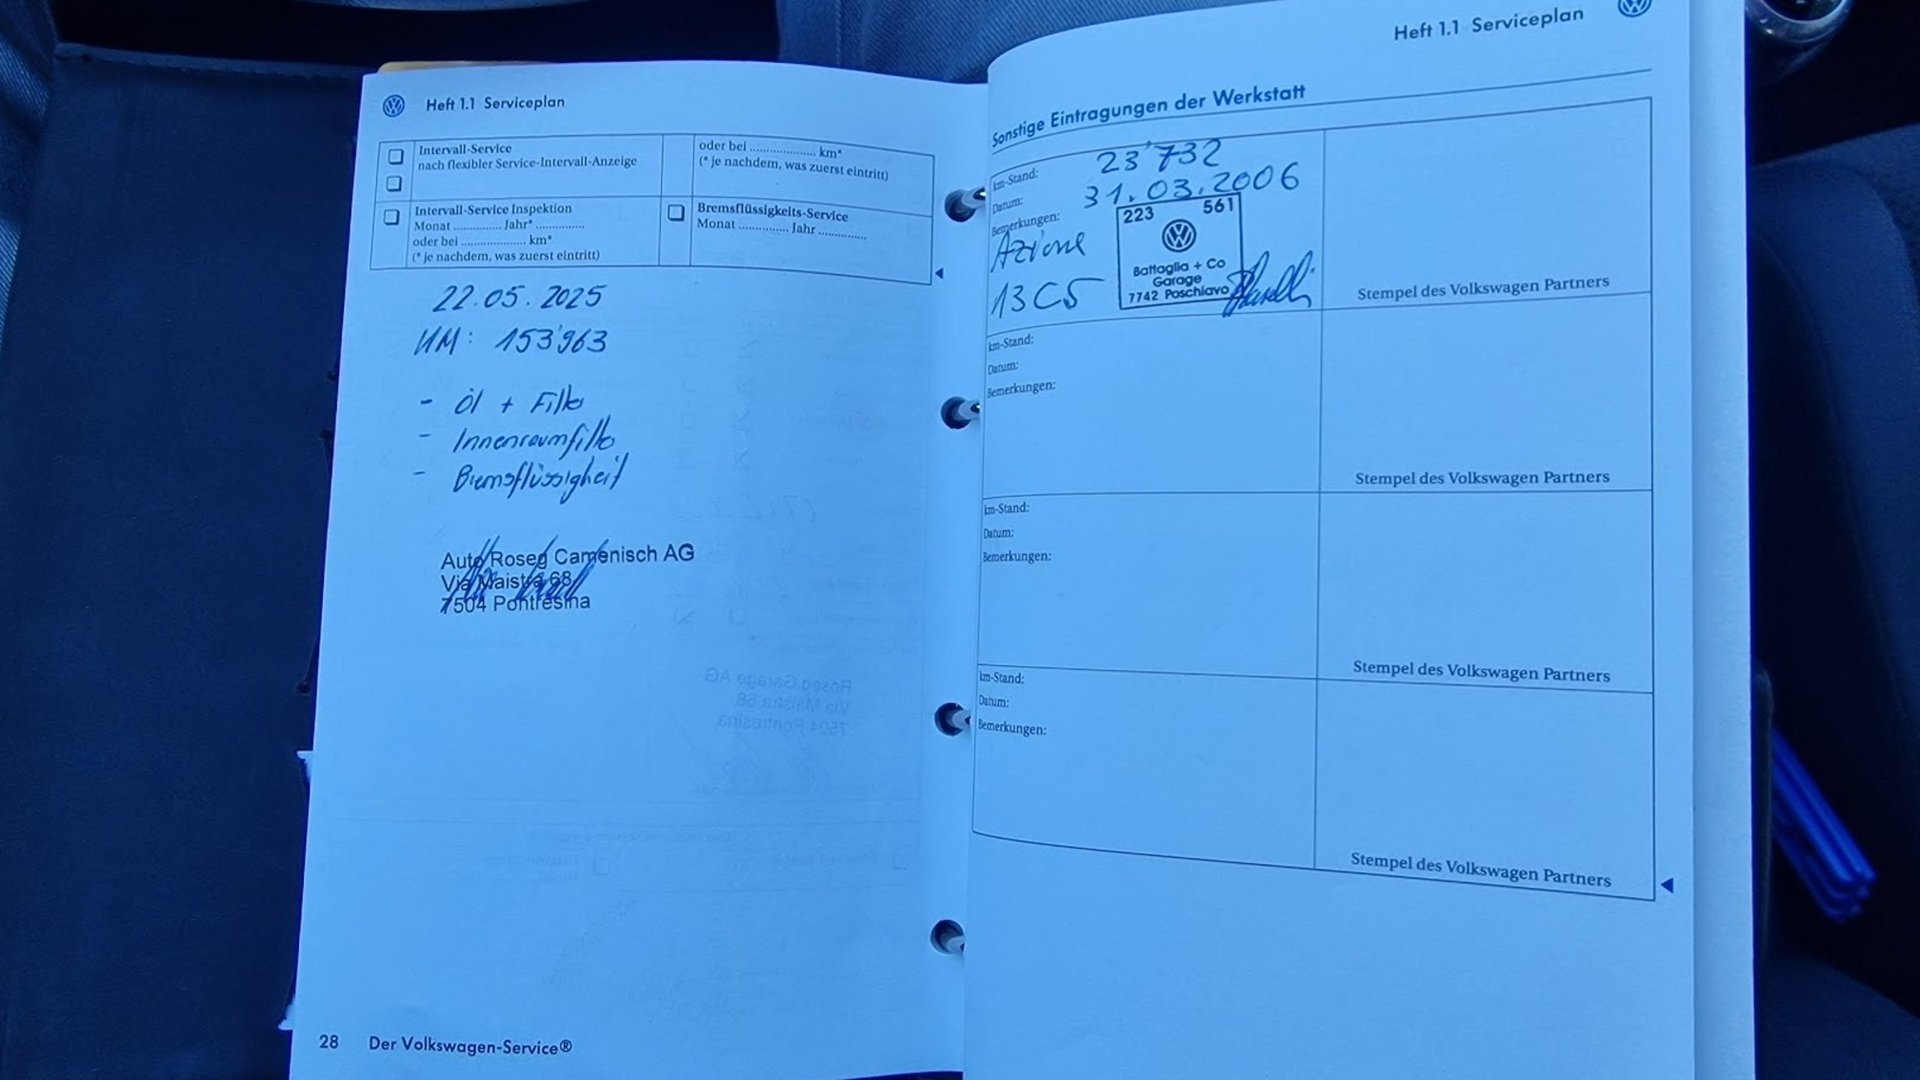 Heft 1.1 Serviceplan
Intervall-Service
nach flexibler Service-Intervall-Anzeige
oder bei .................... km*
(* je nachdem, was zuerst eintritt)
Intervall-Service Inspektion
Monat .............. Jahr* ..............
oder bei .................... km*
(* je nachdem, was zuerst eintritt)
Bremsflüssigkeits-Service
Monat .............. Jahr ..............
22.05.2025
KM: 153'963
- Öl + Filter
- Innenraumfilter
- Bremsflüssigkeit
Auto Roseg Camenisch AG
Via Maistra 68
7504 Pontresina
28 Der Volkswagen-Service®
Heft 1.1 Serviceplan
Sonstige Eintragungen der Werkstatt
km-Stand: 23'732
Datum: 31.03.2006
Bemerkungen:
Azione
13C5
223 561
Battaglia + Co
Garage
7742 Poschiavo
Stempel des Volkswagen Partners
km-Stand:
Datum:
Bemerkungen:
Stempel des Volkswagen Partners
km-Stand:
Datum:
Bemerkungen:
Stempel des Volkswagen Partners
km-Stand:
Datum:
Bemerkungen:
Stempel des Volkswagen Partners